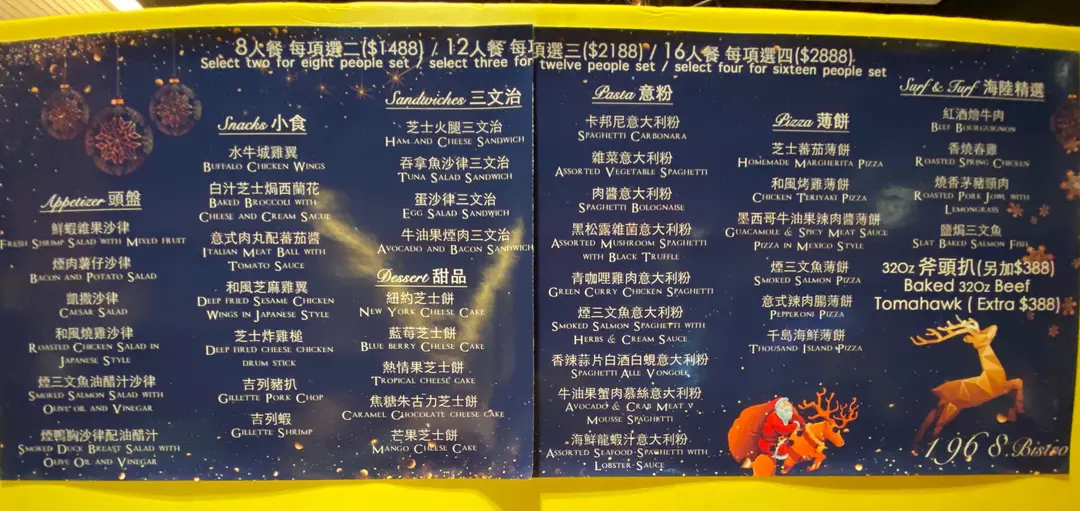 8人餐 每項選二($1488) / 12人餐 每項選三($2188) / 16人餐 每項選四($2888)
Select two for eight people set / select three for twelve people set / select four for sixteen people set
Appetizer 頭盤
鮮蝦雜果沙律
Fresh Shrimp Salad with Mixed fruit
煙肉薯仔沙律
Bacon and Potato Salad
凱撒沙律
Caesar Salad
和風燒雞沙律
Roasted Chicken Salad in
Japanese Style
煙三文魚油醋汁沙律
Smoked Salmon Salad with
Olive oil and Vinegar
煙鴨胸沙律配油醋汁
Smoked Duck Breast Salad with
Olive Oil and Vinegar
Snacks 小食
水牛城雞翼
Buffalo Chicken Wings
白汁芝士焗西蘭花
Baked Broccoli with
Cheese and Cream Sacue
意式肉丸配蕃茄醬
Italian Meat Ball with
Tomato Sauce
和風芝麻雞翼
Deep fried Sesame Chicken
Wings in Japanese Style
芝士炸雞槌
Deep fired cheese chicken
drum stick
吉列豬扒
Gillette Pork Chop
吉列蝦
Gillette Shrimp
Sandwiches 三文治
芝士火腿三文治
Ham and Cheese Sandwich
吞拿魚沙律三文治
Tuna Salad Sandwich
蛋沙律三文治
Egg Salad Sandwich
牛油果煙肉三文治
Avocado and Bacon Sandwich
Dessert 甜品
紐約芝士餅
New York Cheese Cake
藍莓芝士餅
Blue berry Cheese Cake
熱情果芝士餅
Tropical cheese cake
焦糖朱古力芝士餅
Caramel Chocolate cheese cake
芒果芝士餅
Mango Cheese Cake
Pasta 意粉
卡邦尼意大利粉
Spaghetti Carbonara
雜菜意大利粉
Assorted Vegetable Spaghetti
肉醬意大利粉
Spaghetti Bolognaise
黑松露雜菌意大利粉
Assorted Mushroom Spaghetti
with Black Truffle
青咖哩雞肉意大利粉
Green Curry Chicken Spaghetti
煙三文魚意大利粉
Smoked Salmon Spaghetti with
Herbs & Cream Sauce
香辣蒜片白酒白蜆意大利粉
Spaghetti Alle Vongole
牛油果蟹肉慕絲意大利粉
Avocado & Crab Meat v
Mousse Spaghetti
海鮮龍蝦汁意大利粉
Assorted Seafood Spaghetti with
Lobster Sauce
Pizza 薄餅
芝士蕃茄薄餅
Homemade Margherita Pizza
和風烤雞薄餅
Chicken Teriyaki Pizza
墨西哥牛油果辣肉醬薄餅
Guacamole & Spicy Meat Sauce
Pizza in Mexico Style
煙三文魚薄餅
Smoked Salmon Pizza
意式辣肉腸薄餅
Pepperoni Pizza
千島海鮮薄餅
Thousand Island Pizza
Surf & Turf 海陸精選
紅酒燴牛肉
Beef Bourguignon
香燒春雞
Roasted Spring Chicken
燒香茅豬頸肉
Roasted Pork Jowl with
Lemongrass
鹽焗三文魚
Slat Baked Salmon Fish
32Oz 斧頭扒(另加$388)
Baked 32Oz Beef
Tomahawk ( Extra $388)
1968 Bistro